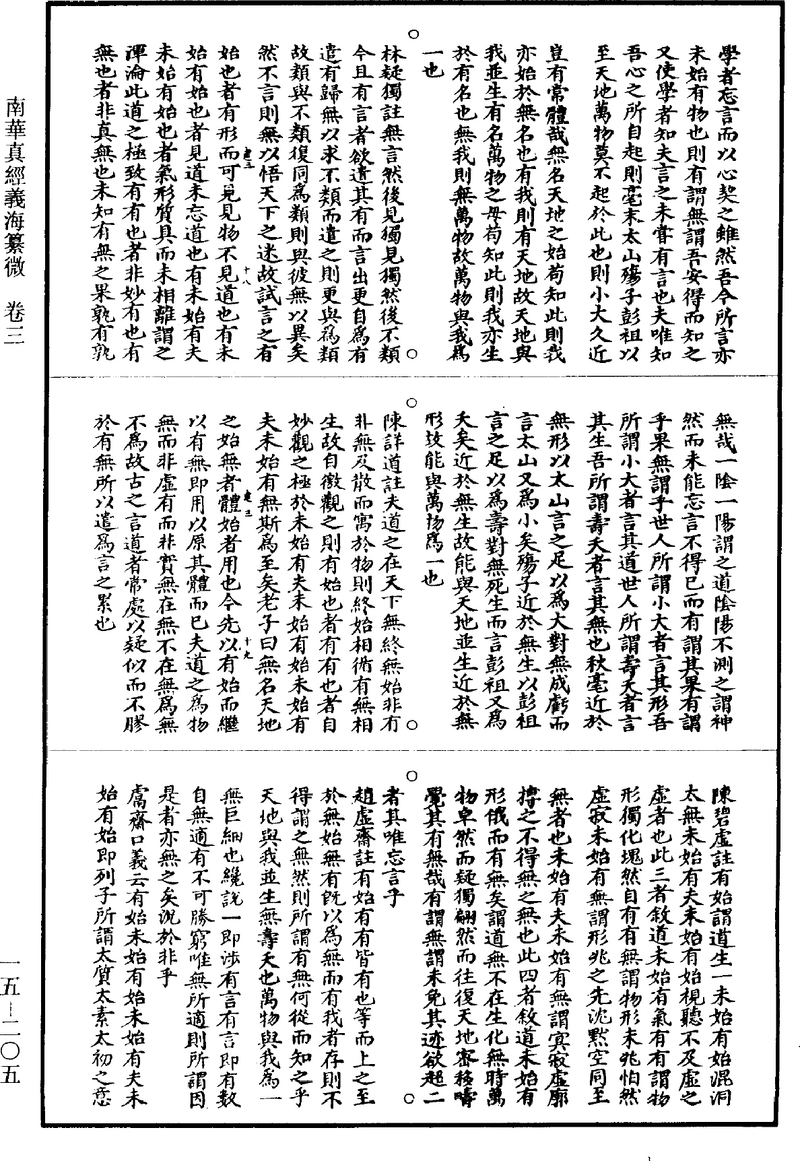 南華真經義海纂微　卷三
學者忘言而以心契之雖然吾今所言亦
未始有物也則有謂無謂吾安得而知之
又使學者知夫言之未嘗有言也夫唯知
吾心之所自起則毫末太山殤子彭祖以
至天地萬物莫不起於此也則小大久近
豈有常體哉無名天地之始苟知此則我
亦始於無名也有我則有天地故天地與
我並生有名萬物之母苟知此則我亦生
於有名也無我則無萬物故萬物與我為
一也
林疑獨註無言然後見獨見獨然後不類
今且有言者欲遣其有而言出更自為有
遣有歸無以求不類而遣之則更與為類
故類與不類復同為類則與彼無以異矣
然不言則無以悟天下之迷故試言之有
始也者有形而可見見物不見道也有未
始有始也者見道未忘道也有未始有夫
未始有始也者氣形質具而未相離謂之
渾淪此道之極致有有也者非妙有也有
無也者非真無也未知有無之果孰有孰
無哉一陰一陽謂之道陰陽不測之謂神
然而未能忘言不得已而有謂其果有謂
乎果無謂乎世人所謂小大者言其形吾
所謂小大者言其道世人所謂壽夭者言
其生吾所謂壽夭者言其無也秋毫近於
無形以太山言之足以為大對無成虧而
言太山又為小矣殤子近於無生以彭祖
言之足以為壽對無死生而言彭祖又為
夭矣近於無生故能與天地並生近於無
形故能與萬物為一也
陳詳道註夫道之在天下無終無始非有
非無及散而寓於物則終始相循有無相
生故自徼觀之則有始也者有有也者自
妙觀之極於未始有夫未始有始未始有
夫未始有無斯為至矣老子曰無名天地
之始無者體始者用也今先以有始而繼
以有無即用以原其體而已夫道之為物
無而非虛有而非實無在無不在無為無
不為故古之言道者常處以疑似而不膠
於有無所以遣為言之累也
陳碧虛註有始謂道生一未始有始混洞
太無未始有夫未始有始視聽不及虛之
虛者也此三者敘道未始有氣有有謂物
形獨化塊然自有有無謂物形未兆怕然
虛寂未始有無謂形兆之先沈默空同至
無者也未始有夫未始有無謂寞寂虛廓
摶之不得無之無也此四者敘道未始有
形俄而有無矣謂道無不在生化無時萬
物卓然而疑獨翩然而往復天地密移疇
覺其有無哉有謂無謂未免其迹欲超二
者其唯忘言乎
趙虛齋註有始有有皆有也等而上之至
於無始無有既以為無而有我者存則不
得謂之無然則所謂有無何從而知之乎
天地與我並生無壽夭也萬物與我為一
無巨細也纔說一即涉有言有言即有數
自無適有不可勝窮唯無所適則所謂因
是者亦無之矣況於非乎
鬳齋口義云有始未始有始未始有夫未
始有始即列子所謂太質太素太初之意
一五—二〇五